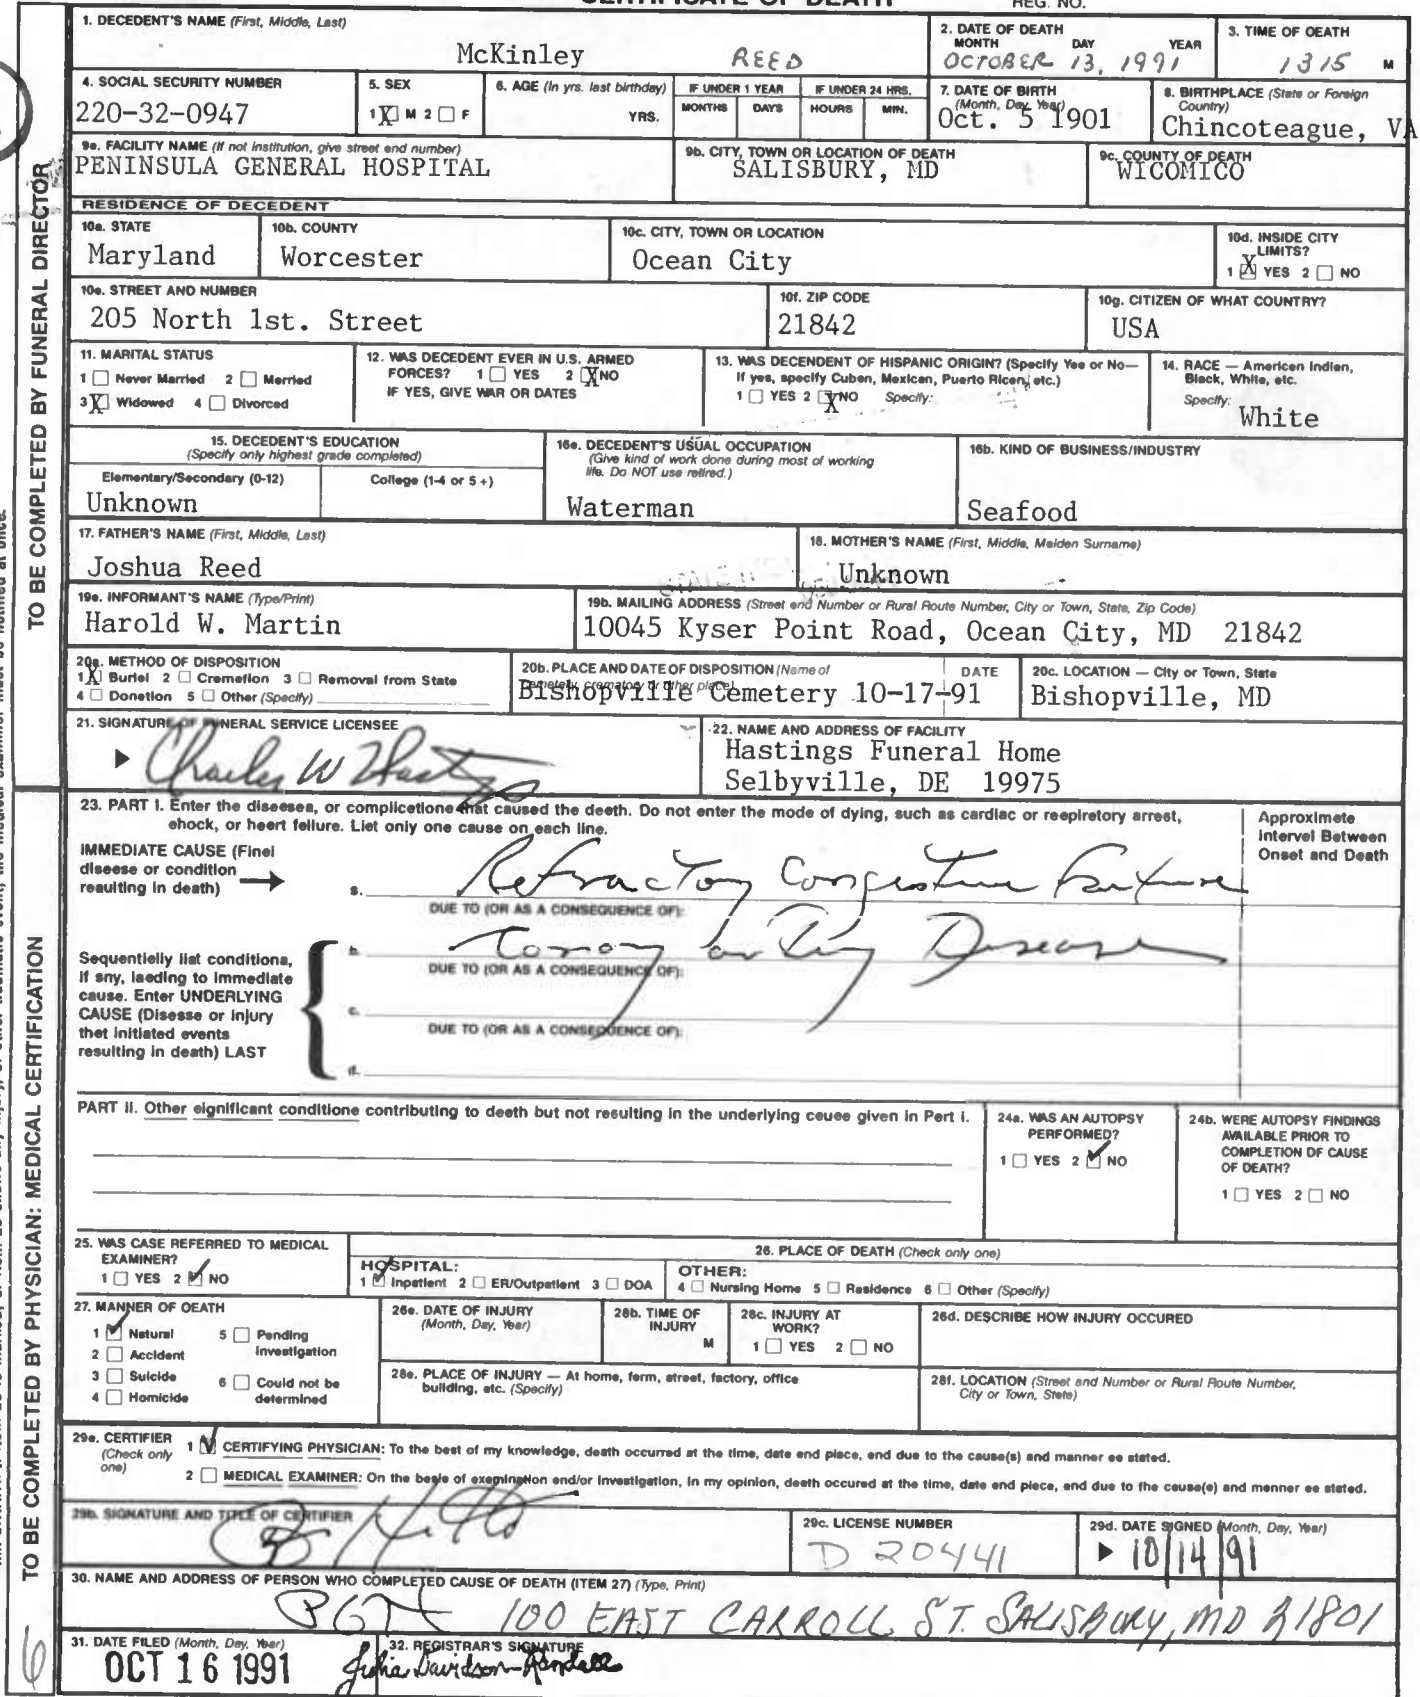 CERTIFICATE OF DEATH REG. NO.
1. DECEDENT'S NAME (First, Middle, Last)
McKinley REED
2. DATE OF DEATH
MONTH DAY YEAR
OCTOBER 13, 1991
3. TIME OF DEATH
1315 M
4. SOCIAL SECURITY NUMBER
220-32-0947
5. SEX
1 X M 2 ☐ F
6. AGE (In yrs. last birthday)
YRS.
IF UNDER 1 YEAR
MONTHS DAYS
IF UNDER 24 HRS.
HOURS MIN.
7. DATE OF BIRTH
(Month, Day, Year)
Oct. 5 1901
8. BIRTHPLACE (State or Foreign
Country)
Chincoteague, VA
9a. FACILITY NAME (If not institution, give street and number)
PENINSULA GENERAL HOSPITAL
9b. CITY, TOWN OR LOCATION OF DEATH
SALISBURY, MD
9c. COUNTY OF DEATH
WICOMICO
RESIDENCE OF DECEDENT
10a. STATE
Maryland
10b. COUNTY
Worcester
10c. CITY, TOWN OR LOCATION
Ocean City
10d. INSIDE CITY
LIMITS?
1 X YES 2 ☐ NO
10e. STREET AND NUMBER
205 North 1st. Street
10f. ZIP CODE
21842
10g. CITIZEN OF WHAT COUNTRY?
USA
11. MARITAL STATUS
1 ☐ Never Married 2 ☐ Married
3 X Widowed 4 ☐ Divorced
12. WAS DECEDENT EVER IN U.S. ARMED
FORCES? 1 ☐ YES 2 X NO
IF YES, GIVE WAR OR DATES
13. WAS DECENDENT OF HISPANIC ORIGIN? (Specify Yes or No—
If yes, specify Cuban, Mexican, Puerto Rican, etc.)
1 ☐ YES 2 X NO Specify:
14. RACE — American Indian,
Black, White, etc.
Specify:
White
15. DECEDENT'S EDUCATION
(Specify only highest grade completed)
Elementary/Secondary (0-12) College (1-4 or 5 +)
Unknown
16a. DECEDENT'S USUAL OCCUPATION
(Give kind of work done during most of working
life. Do NOT use retired.)
Waterman
16b. KIND OF BUSINESS/INDUSTRY
Seafood
17. FATHER'S NAME (First, Middle, Last)
Joshua Reed
18. MOTHER'S NAME (First, Middle, Maiden Surname)
Unknown
19a. INFORMANT'S NAME (Type/Print)
Harold W. Martin
19b. MAILING ADDRESS (Street and Number or Rural Route Number, City or Town, State, Zip Code)
10045 Kyser Point Road, Ocean City, MD 21842
20a. METHOD OF DISPOSITION
1 X Burial 2 ☐ Cremation 3 ☐ Removal from State
4 ☐ Donation 5 ☐ Other (Specify)
20b. PLACE AND DATE OF DISPOSITION (Name of DATE
cemetery, crematory or other place)
Bishopville Cemetery 10-17-91
20c. LOCATION — City or Town, State
Bishopville, MD
21. SIGNATURE OF FUNERAL SERVICE LICENSEE
Charles W Hastings
22. NAME AND ADDRESS OF FACILITY
Hastings Funeral Home
Selbyville, DE 19975
23. PART I. Enter the diseases, or complications that caused the death. Do not enter the mode of dying, such as cardiac or respiratory arrest,
shock, or heart failure. List only one cause on each line.
Approximate
Interval Between
Onset and Death
IMMEDIATE CAUSE (Final
disease or condition
resulting in death)
a. Refractory Congestive Failure
DUE TO (OR AS A CONSEQUENCE OF):
b. Coronary artery Disease
DUE TO (OR AS A CONSEQUENCE OF):
c.
DUE TO (OR AS A CONSEQUENCE OF):
d.
Sequentially list conditions,
if any, leading to immediate
cause. Enter UNDERLYING
CAUSE (Disease or injury
that initiated events
resulting in death) LAST
PART II. Other significant conditions contributing to death but not resulting in the underlying cause given in Part I.
24a. WAS AN AUTOPSY
PERFORMED?
1 ☐ YES 2 ✓ NO
24b. WERE AUTOPSY FINDINGS
AVAILABLE PRIOR TO
COMPLETION OF CAUSE
OF DEATH?
1 ☐ YES 2 ☐ NO
25. WAS CASE REFERRED TO MEDICAL
EXAMINER?
1 ☐ YES 2 ✓ NO
26. PLACE OF DEATH (Check only one)
HOSPITAL:
1 ✓ Inpatient 2 ☐ ER/Outpatient 3 ☐ DOA
OTHER:
4 ☐ Nursing Home 5 ☐ Residence 6 ☐ Other (Specify)
27. MANNER OF DEATH
1 ✓ Natural 5 ☐ Pending
Investigation
2 ☐ Accident
3 ☐ Suicide 6 ☐ Could not be
determined
4 ☐ Homicide
28a. DATE OF INJURY
(Month, Day, Year)
28b. TIME OF
INJURY
M
28c. INJURY AT
WORK?
1 ☐ YES 2 ☐ NO
28d. DESCRIBE HOW INJURY OCCURED
28e. PLACE OF INJURY — At home, farm, street, factory, office
building, etc. (Specify)
28f. LOCATION (Street and Number or Rural Route Number,
City or Town, State)
29a. CERTIFIER
(Check only
one)
1 ✓ CERTIFYING PHYSICIAN: To the best of my knowledge, death occurred at the time, date and place, and due to the cause(s) and manner as stated.
2 ☐ MEDICAL EXAMINER: On the basis of examination and/or investigation, in my opinion, death occured at the time, date and place, and due to the cause(s) and manner as stated.
29b. SIGNATURE AND TITLE OF CERTIFIER
29c. LICENSE NUMBER
D 20441
29d. DATE SIGNED (Month, Day, Year)
10/14/91
30. NAME AND ADDRESS OF PERSON WHO COMPLETED CAUSE OF DEATH (ITEM 27) (Type, Print)
100 EAST CARROLL ST. SALISBURY, MD 21801
31. DATE FILED (Month, Day, Year)
OCT 16 1991
32. REGISTRAR'S SIGNATURE
Julia Davidson-Randall
TO BE COMPLETED BY FUNERAL DIRECTOR
TO BE COMPLETED BY PHYSICIAN: MEDICAL CERTIFICATION
6